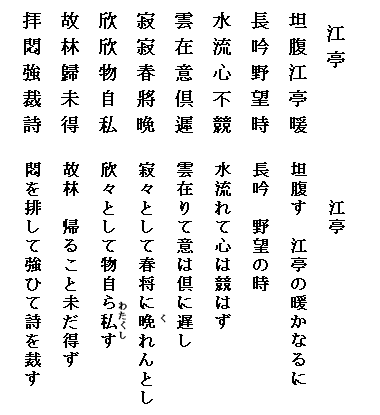 江亭
坦腹江亭暖
長吟野望時
水流心不競
雲在意俱遲
寂寂春將晩
欣欣物自私
故林歸未得
拝悶強裁詩
江亭
坦腹す　江亭の暖かなるに
長吟　野望の時
水流れて心は競はず
雲在りて意は倶に遅し
寂々として春将に晩れんとし
く
欣々として物自ら私す
わたくし
故林　帰ること未だ得ず
悶を排して強ひて詩を裁す